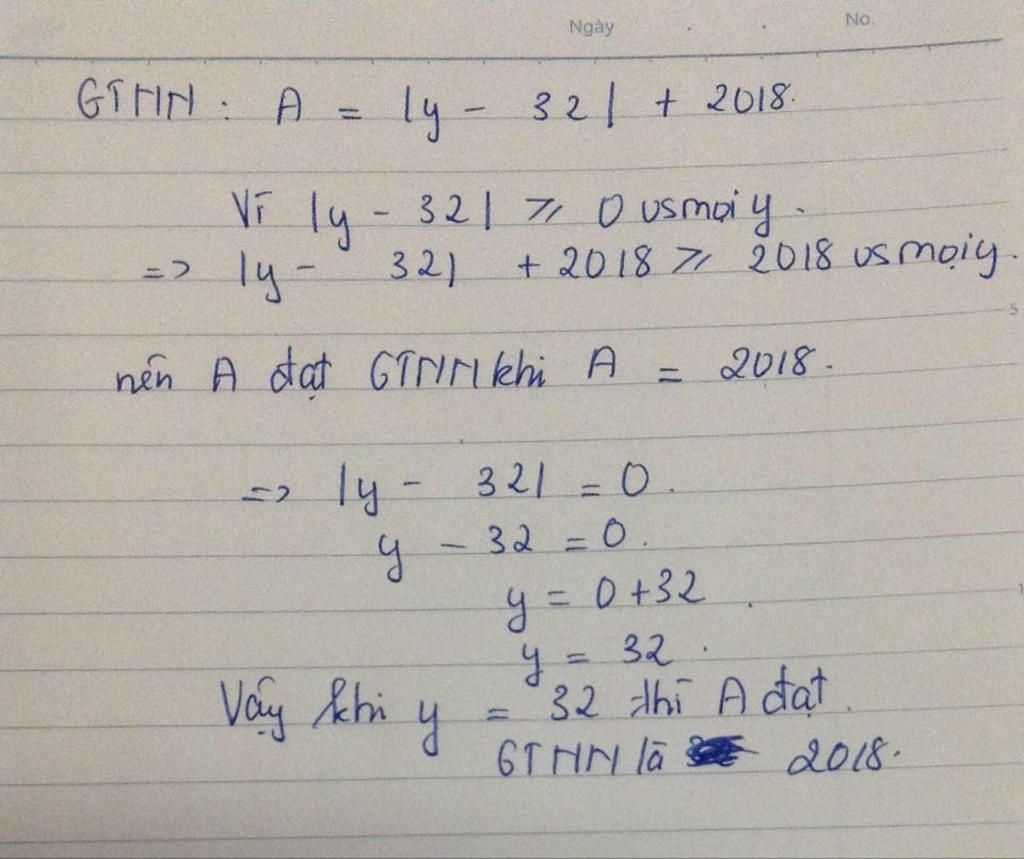 Ngày No.
GTNN : A = |y - 32| + 2018.
Vì |y - 32| ≥ 0 vs mọi y.
=> |y - 32| + 2018 ≥ 2018 vs mọi y.
5
nên A đạt GTNN khi A = 2018.
=> |y - 32| = 0.
y - 32 = 0.
y = 0 + 32
y = 32.
Vậy khi y = 32 thì A đạt
GTNN là 2018.